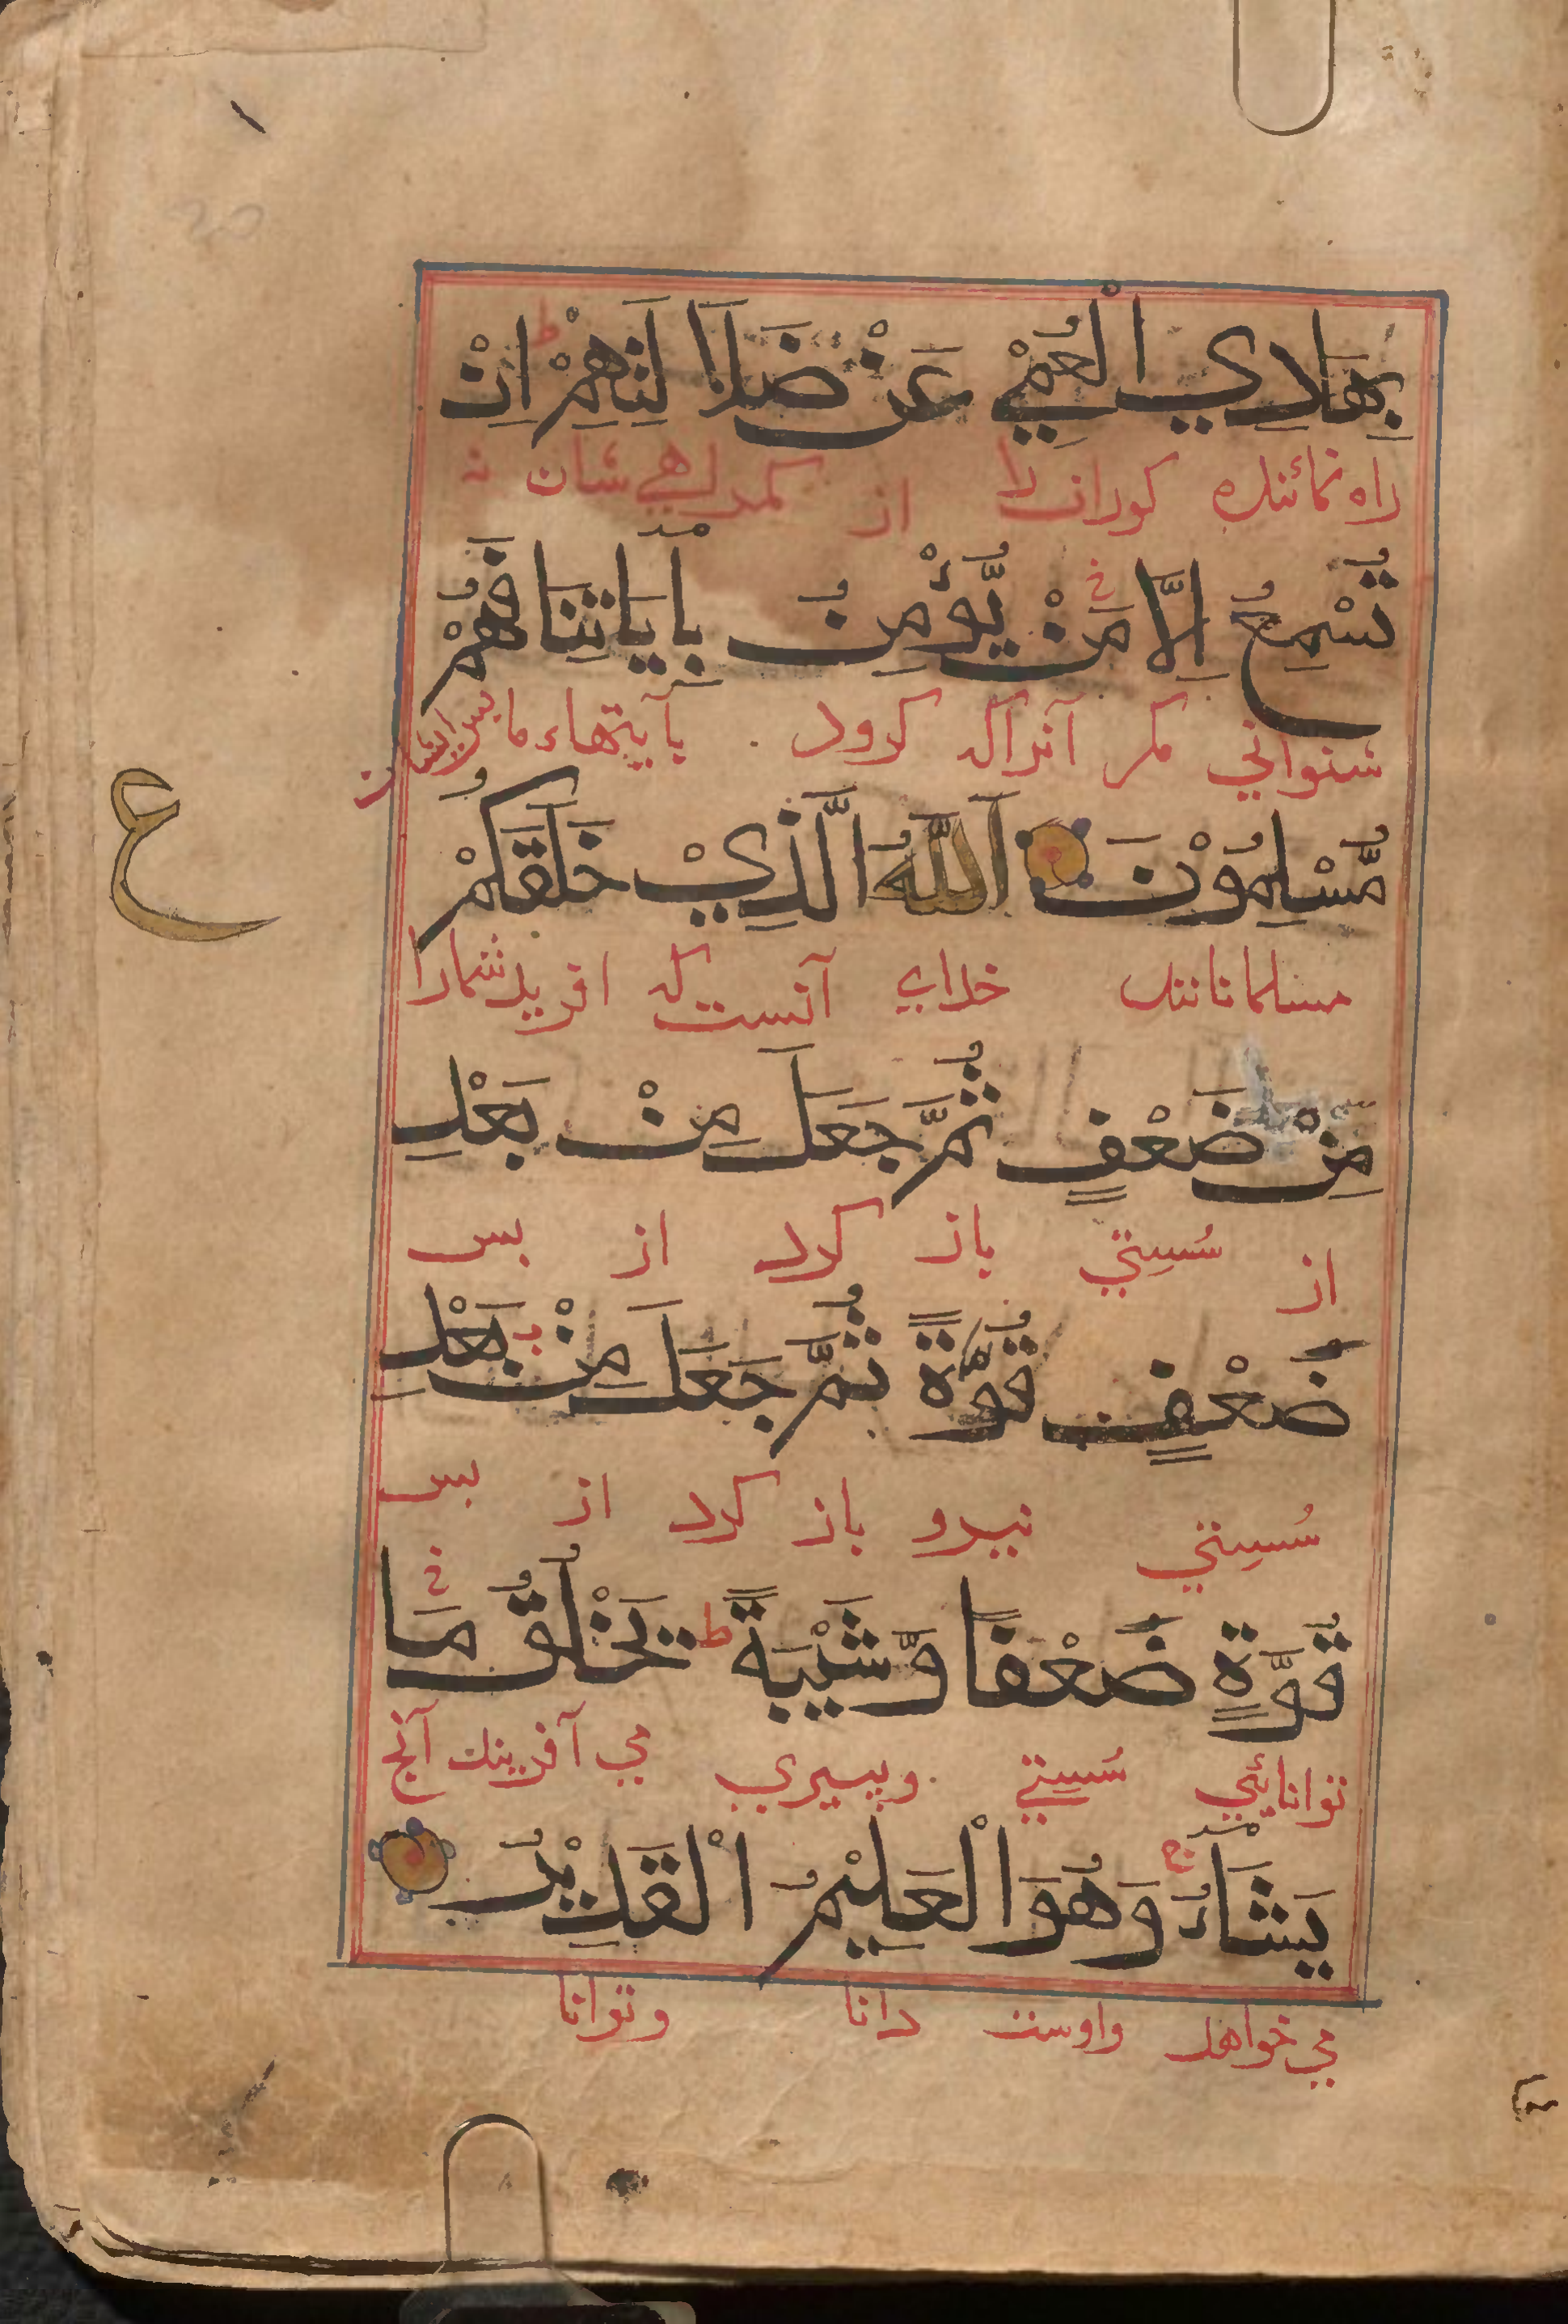 بِهَادِي الْعُمْيِ عَنْ ضَلَا لَتِهِمْ ط اِنْ
راه نمائنده كورانرا از كمراهي شان نه
تُسْمِعُ اِلَّا مَنْ يُّؤْمِنُ بِاٰيَاتِنَا فَهُمْ
شنواني مكر آنراكه كرود بآيتهاء ما بس ايشان
مُّسْلِمُوْنَ اَللّٰهُ الَّذِيْ خَلَقَكُمْ
ع
مسلمانانند خداي آنست كه افريد شمارا
مِنْ ضَعْفٍ ثُمَّ جَعَلَ مِنْ بَعْدِ
از سُستي باز كرد از بس
ضَعْفٍ قُوَّةً ثُمَّ جَعَلَ مِنْ بَعْدِ
سُستي نيرو باز كرد از بس
قُوَّةٍ ضَعْفًا وَّشَيْبَةً ط يَخْلُقُ مَا
توانايئي سُستي وبيري مي آفريند آنج
يَشَآءُ ج وَهُوَ الْعَلِيْمُ الْقَدِيْرُ
مي خواهد واوست دانا وتوانا